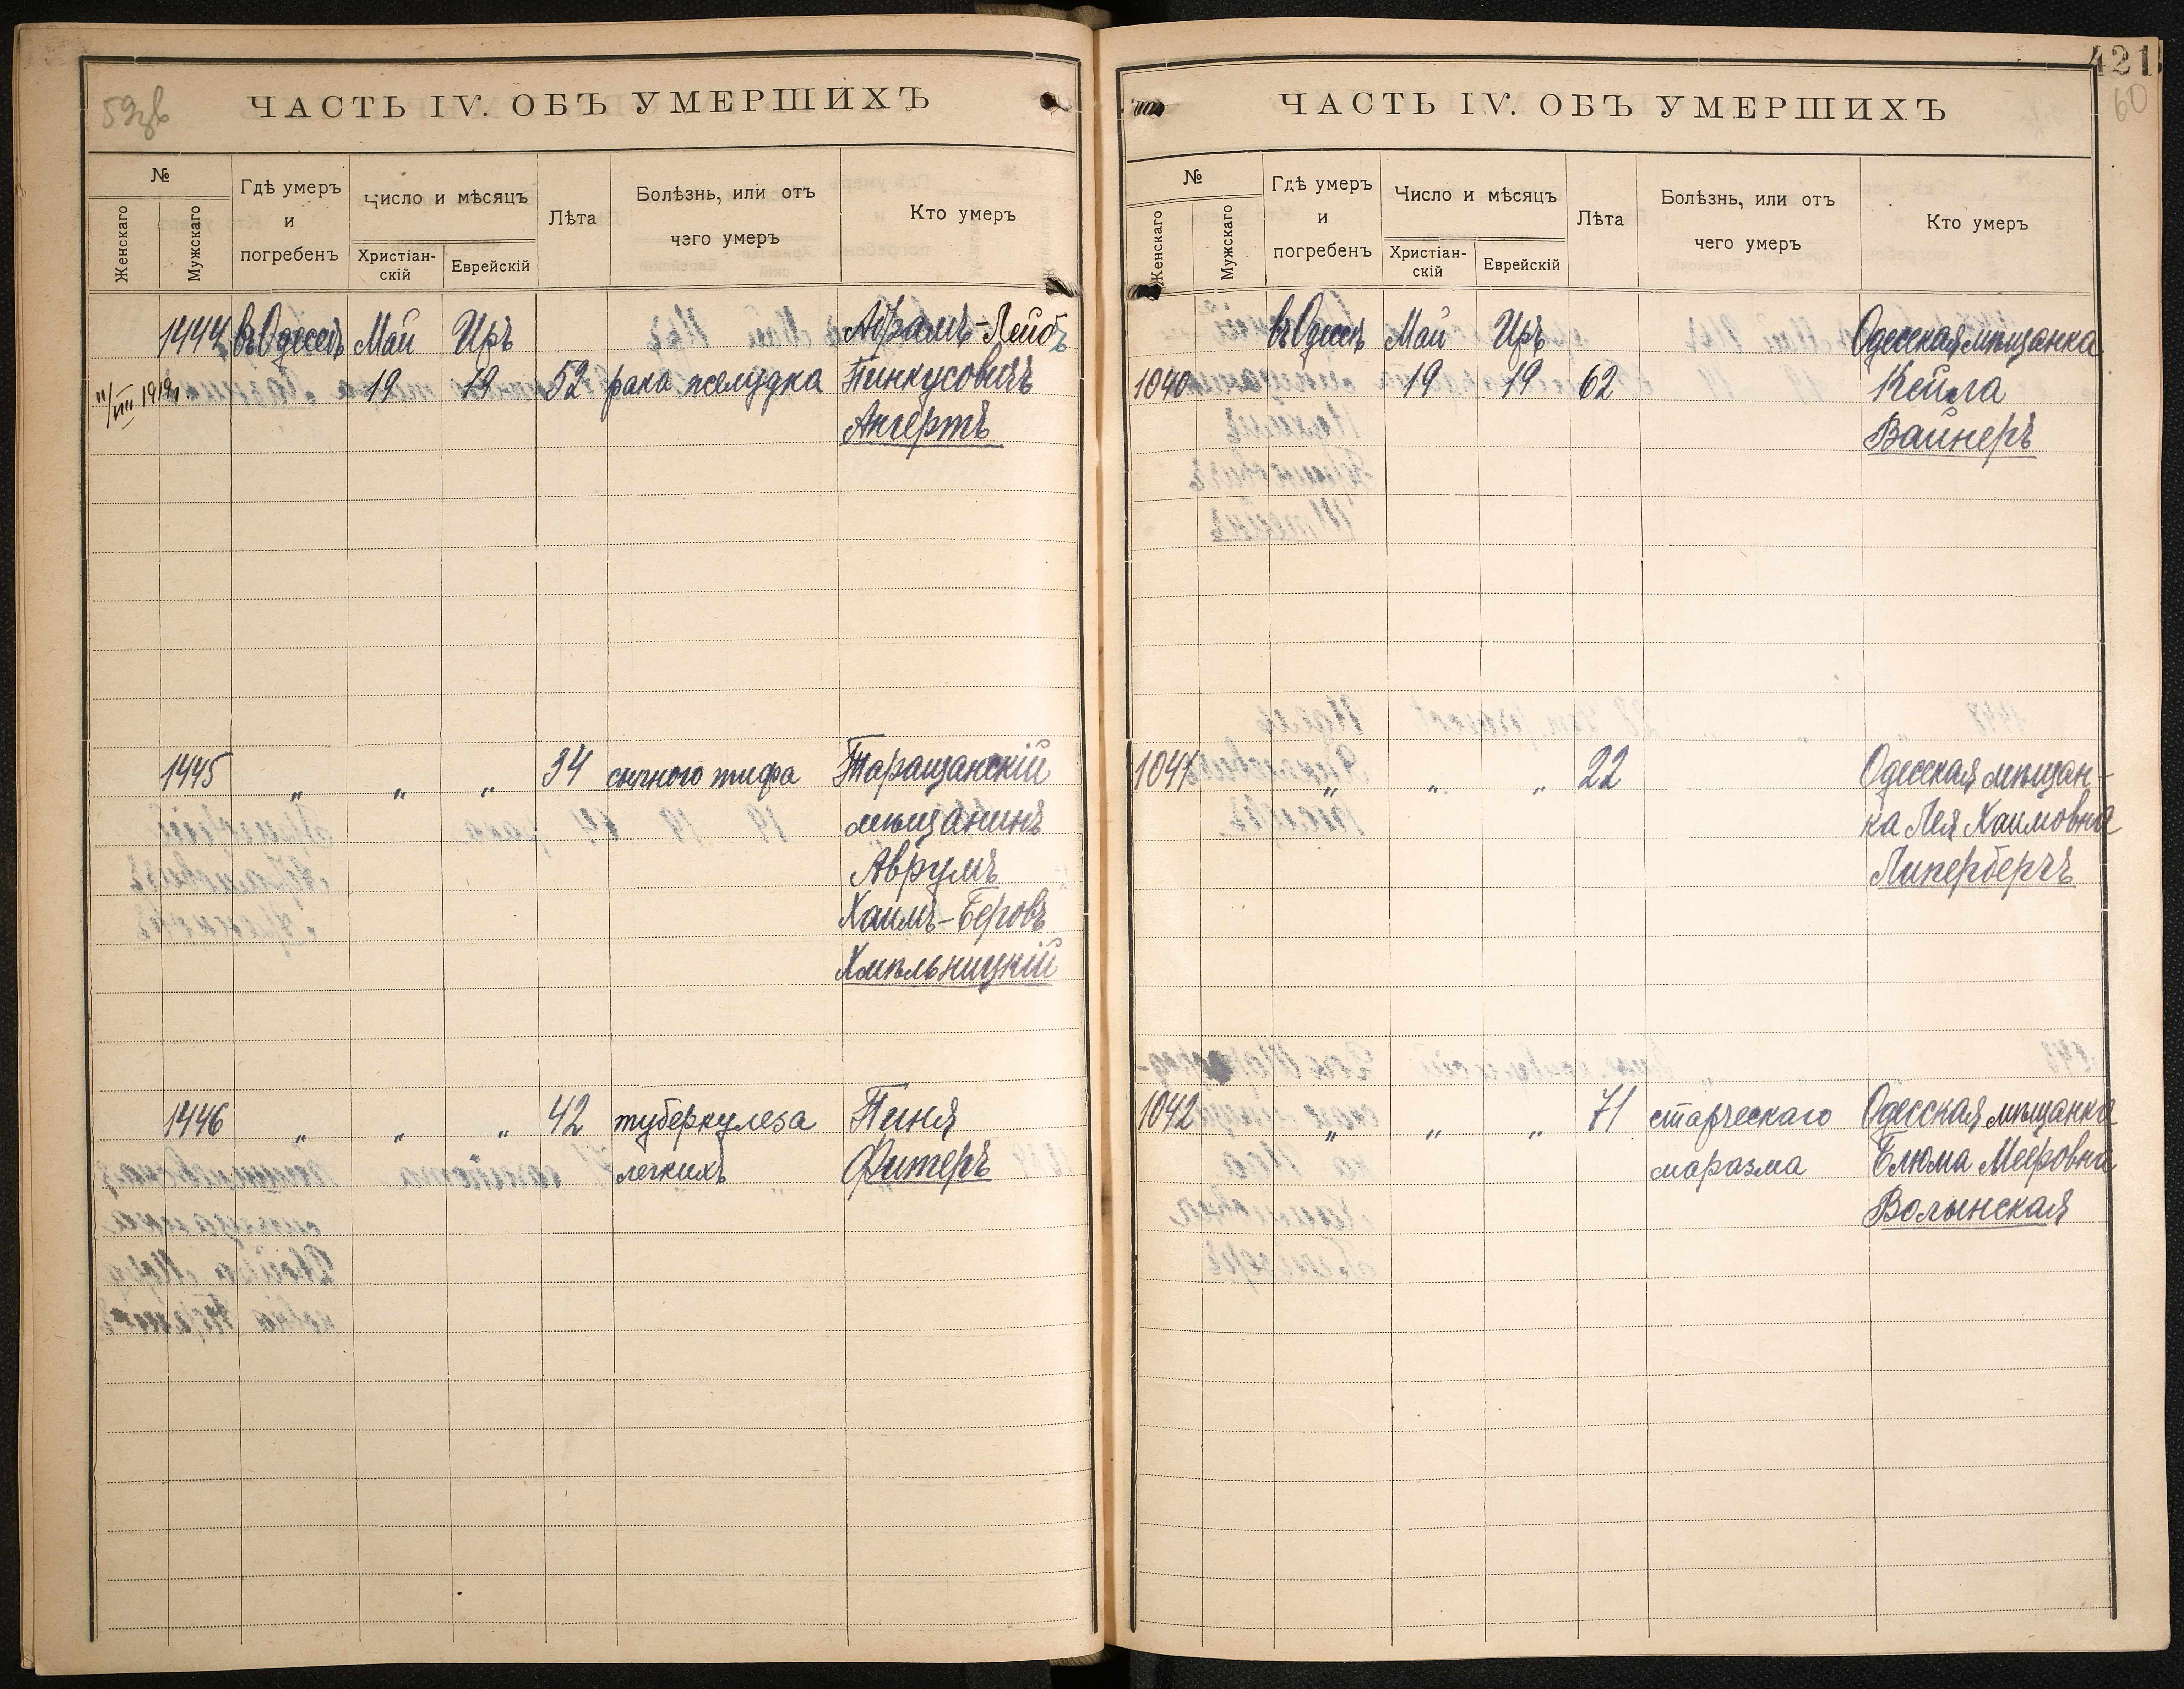 59зв
ЧАСТЬ IV. ОБЪ УМЕРШИХЪ
№
Женскаго
Мужскаго
Гдѣ умеръ
и
погребенъ
Число и мѣсяцъ
Христіан-
скій
Еврейскій
Лѣта
Болѣзнь, или отъ
чего умеръ
Кто умеръ
1444 въ Одессѣ Май Иръ Абрамъ-Лейбъ
11/VIII 1919 19 19 52 рака желудка Пинкусовичъ
Ангертъ
1445 " " " 34 сыпного тифа Таращанскій
мѣщанинъ
Аврумъ
Хаимъ-Беровъ
Хмѣльницкій
1446 " " " 42 туберкулеза Пиня
легкихъ Фитеръ
421
60
ЧАСТЬ IV. ОБЪ УМЕРШИХЪ
№
Женскаго
Мужскаго
Гдѣ умеръ
и
погребенъ
Число и мѣсяцъ
Христіан-
скій
Еврейскій
Лѣта
Болѣзнь, или отъ
чего умеръ
Кто умеръ
въ Одессѣ Май Иръ Одесская мѣщанка
1040 19 19 62 Кейла
Вайнеръ
1041 " " " 22 Одесская мѣщан-
ка Лея Хаимовна
Липербергъ
1042 " " " 71 старческаго Одесская мѣщанка
маразма Блюма Меєровна
Волынская